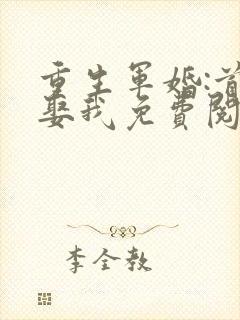 重生軍婚:首
娶我免費閱
李全教